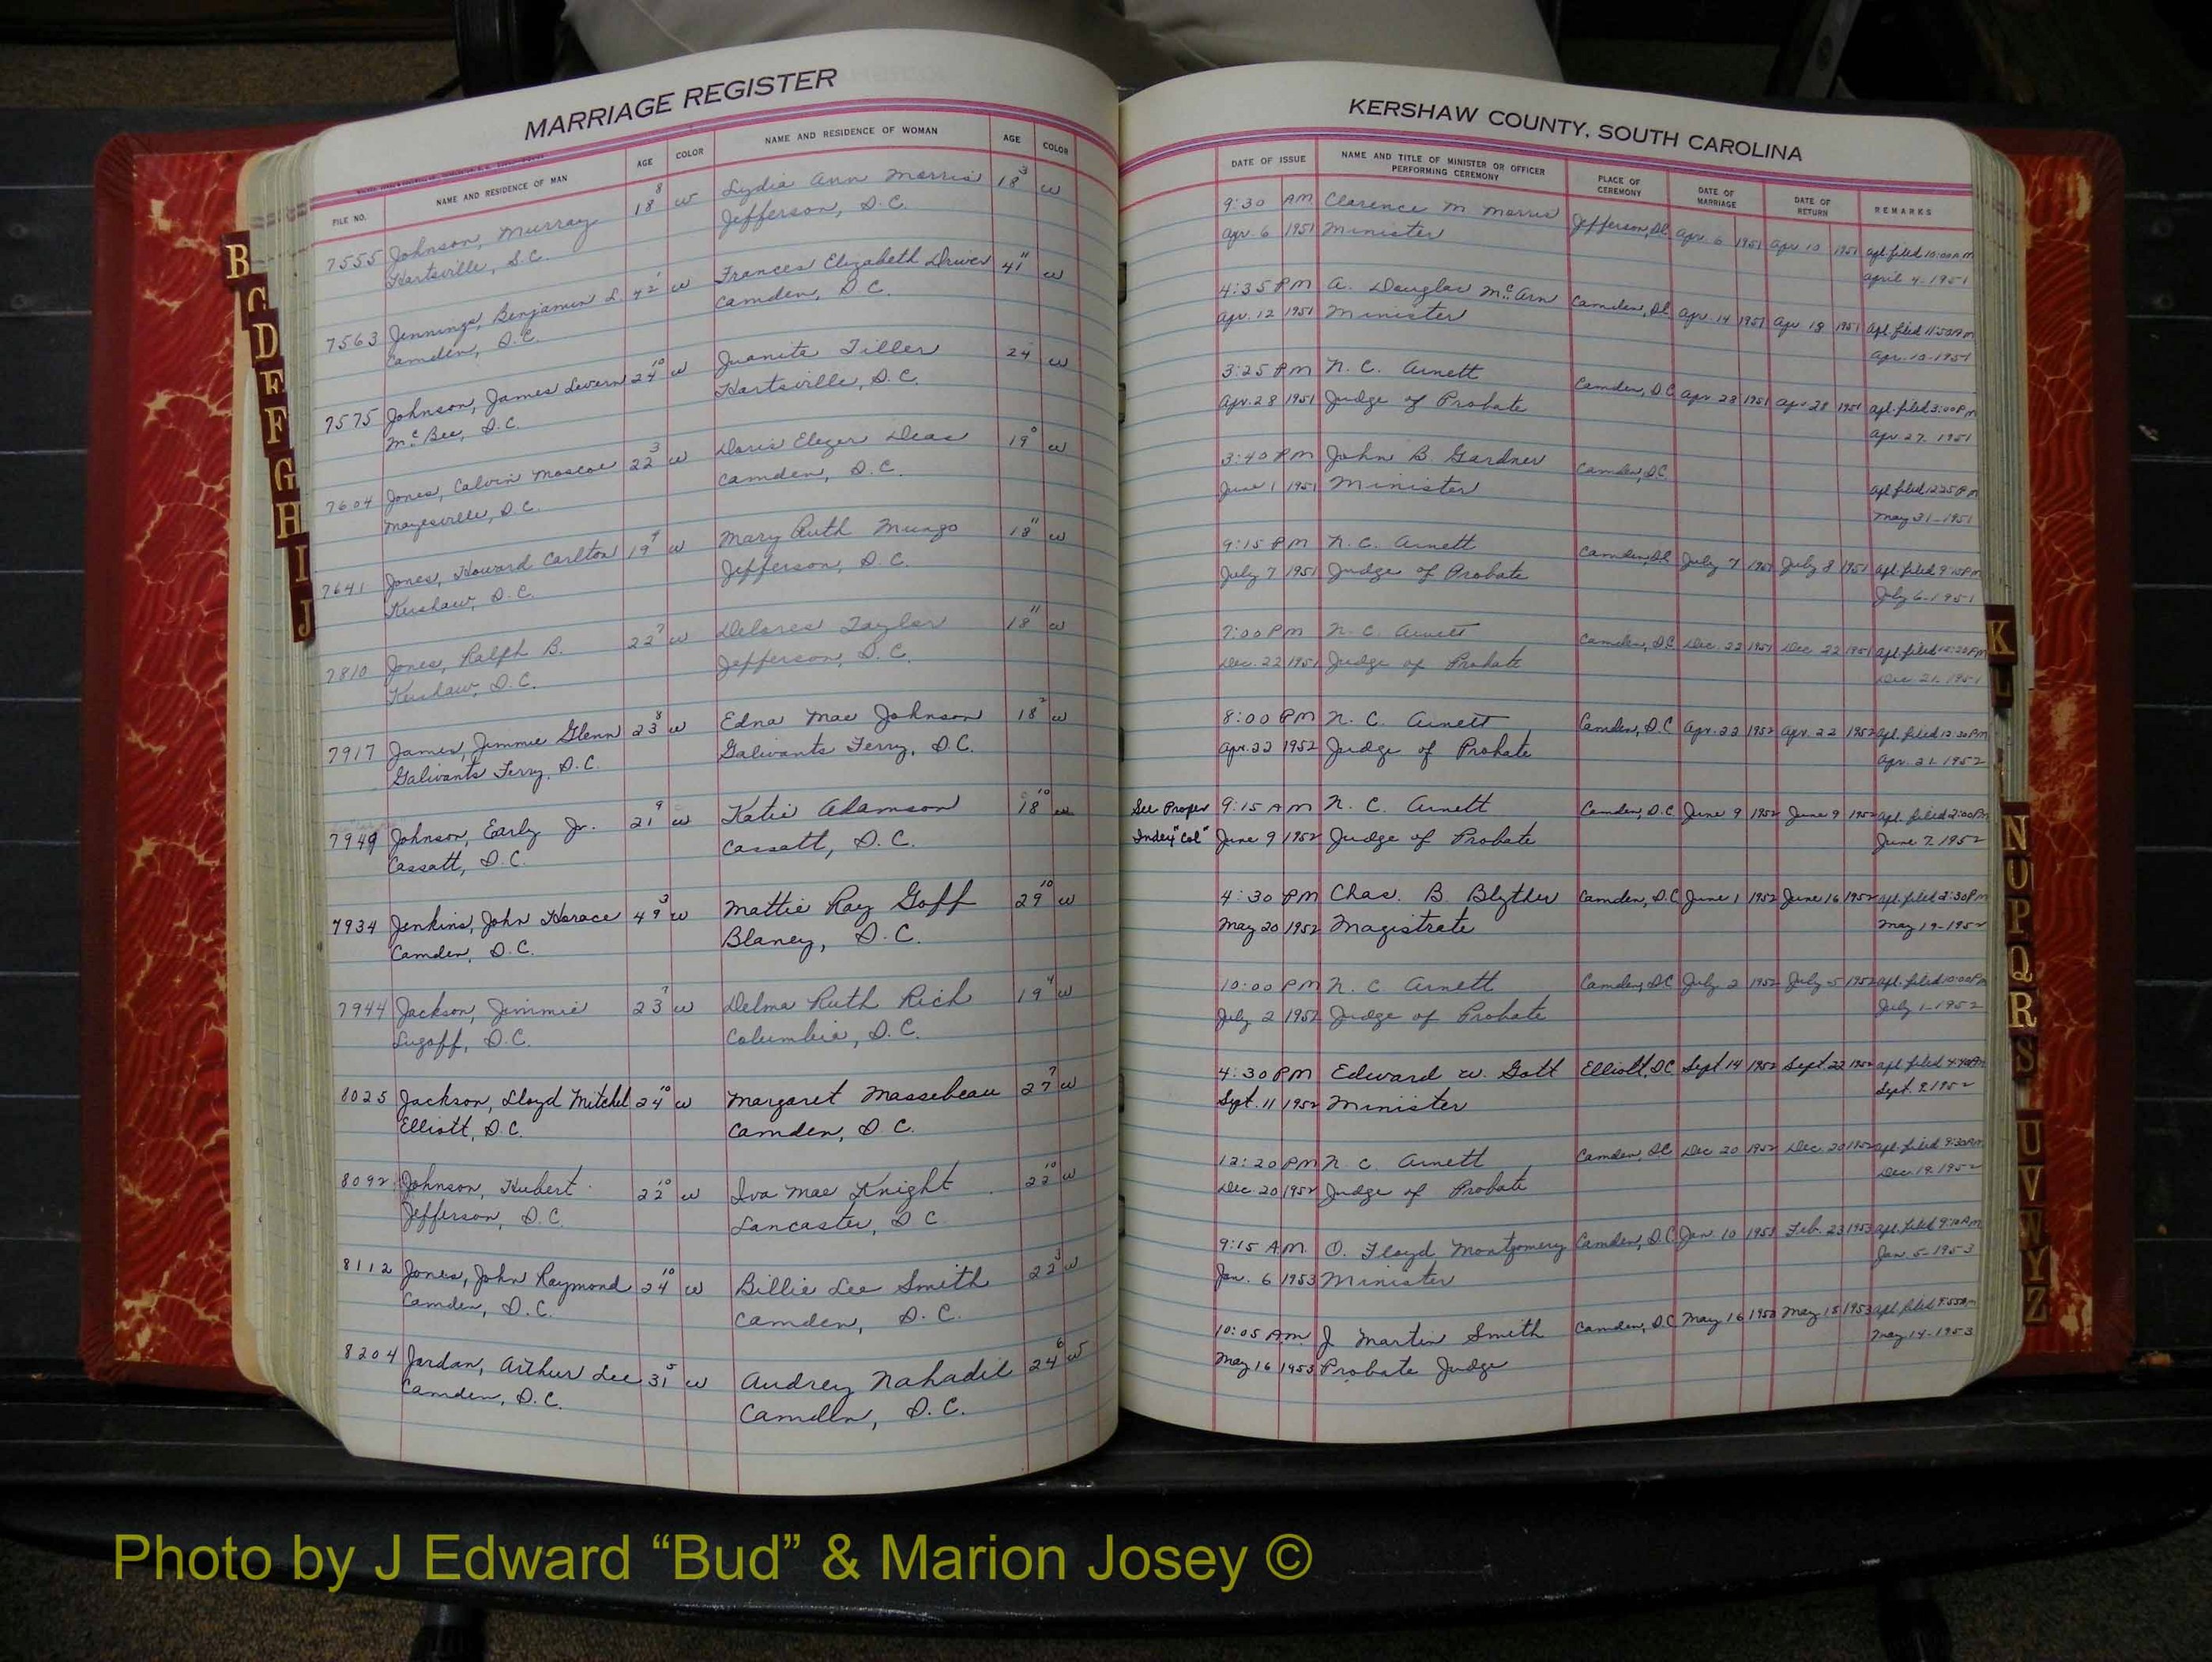 MARRIAGE REGISTER
FILE NO. NAME AND RESIDENCE OF MAN AGE COLOR NAME AND RESIDENCE OF WOMAN AGE COLOR
7555 Johnson, Murray 18 8 w Lydia Ann Morris 18 3 w
Hartsville, S.C. Jefferson, S.C.
7563 Jennings, Benjamin L. 42 1 w Frances Elizabeth Driver 41 11 w
Camden, S.C. Camden, S.C.
7575 Johnson, James Levern 24 10 w Juanita Tiller 24 w
McBee, S.C. Hartsville, S.C.
7604 Jones, Calvin Moscoe 22 3 w Doris Elezer Deas 19 0 w
Mayesville, S.C. Camden, S.C.
7641 Jones, Howard Carlton 19 9 w Mary Ruth Mungo 18 11 w
Kershaw, S.C. Jefferson, S.C.
7810 Jones, Ralph B. 22 7 w Delores Taylor 18 11 w
Kershaw, S.C. Jefferson, S.C.
7917 James, Jimmie Glenn 23 8 w Edna Mae Johnson 18 2 w
Galivants Ferry, S.C. Galivants Ferry, S.C.
7949 Johnson, Early Jr. 21 9 w Katie Adamson 18 10
Cassatt, S.C. Cassatt, S.C.
7934 Jenkins, John Horace 49 3 w Mattie Ray Goff 29 10 w
Camden, S.C. Blaney, S.C.
7944 Jackson, Jimmie 23 7 w Delma Ruth Rich 19 4 w
Lugoff, S.C. Columbia, S.C.
8025 Jackson, Lloyd Mitchel 24 10 w Margaret Massebeau 27 7 w
Elliott, S.C. Camden, S.C.
8092 Johnson, Hubert 22 10 w Iva Mae Knight 22 10 w
Jefferson, S.C. Lancaster, S.C.
8112 Jones, John Raymond 24 10 w Billie Lee Smith 22 3 w
Camden, S.C. Camden, S.C.
8204 Jordan, Arthur Lee 31 5 w Audrey Nahadil 24 6 w
Camden, S.C. Camden, S.C.
KERSHAW COUNTY, SOUTH CAROLINA
DATE OF ISSUE NAME AND TITLE OF MINISTER OR OFFICER PERFORMING CEREMONY PLACE OF CEREMONY DATE OF MARRIAGE DATE OF RETURN REMARKS
9:30 AM Clarence M Morris Jefferson, SC Apr. 6 1951 Apr 10 1951 apl. filed 10:00 A.M
Apr. 6 1951 Minister April 4-1951
4:35 PM A. Douglas McArn Camden, SC Apr. 14 1951 Apr 18 1951 apl. filed 11:50 AM
Apr. 12 1951 Minister Apr. 10-1951
3:25 PM N. C. Arnett Camden, S.C. Apr 28 1951 Apr 28 1951 apl. filed 3:00 P.M
Apr. 28 1951 Judge of Probate Apr. 27. 1951
3:40 PM John B Gardner Camden, S.C. apl. filed 12:25 P.M
June 1 1951 Minister May 31-1951
9:15 PM N. C. Arnett Camden, SC July 7 1951 July 8 1951 apl. filed 9:15 PM
July 7 1951 Judge of Probate July 6-1951
7:00 PM N. C. Arnett Camden, S.C Dec. 22 1951 Dec 22 1951 apl. filed
Dec. 22 1951 Judge of Probate Dec. 21-1951
8:00 PM N. C. Arnett Camden, S.C Apr. 22 1952 Apr. 22 1952 apl. filed 12:30 PM
Apr. 22 1952 Judge of Probate Apr. 21-1952
See Proper 9:15 AM N. C. Arnett Camden, S.C June 9 1952 June 9 1952 apl. filed 2:00 PM
Index "Col" June 9 1952 Judge of Probate June 7-1952
4:30 PM Chas. B. Blyther Camden, S.C June 1 1952 June 16 1952 apl. filed 2:30 PM
May 20 1952 Magistrate May 19-1952
10:00 PM N. C Arnett Camden, SC July 2 1952 July 5 1952 apl. filed 10:00 PM
July 2 1952 Judge of Probate July 1-1952
4:30 PM Edward W. Gott Elliott, SC Sept 14 1952 Sept. 22 1952 apl filed
Sept. 11 1952 Minister Sept. 9-1952
12:20 PM N. C. Arnett Camden, SC Dec 20 1952 Dec. 20 1952 apl. filed 9:30 AM
Dec. 20 1952 Judge of Probate Dec. 19-1952
9:15 A.M. O. Floyd Montgomery Camden, S.C Jan. 10 1953 Feb. 23 1953 apl. filed 9:10 AM
Jan. 6 1953 Minister Jan. 5-1953
10:05 A.M. J Martin Smith Camden, S.C May 16 1953 May 15 1953 apl. filed 9:55 AM
May 16 1953 Probate Judge May 14-1953
B
C
D
E
F
G
H
I
J
K
L
N
O
P
Q
R
S
U
V
W
Y
Z
Photo by J Edward “Bud” & Marion Josey ©